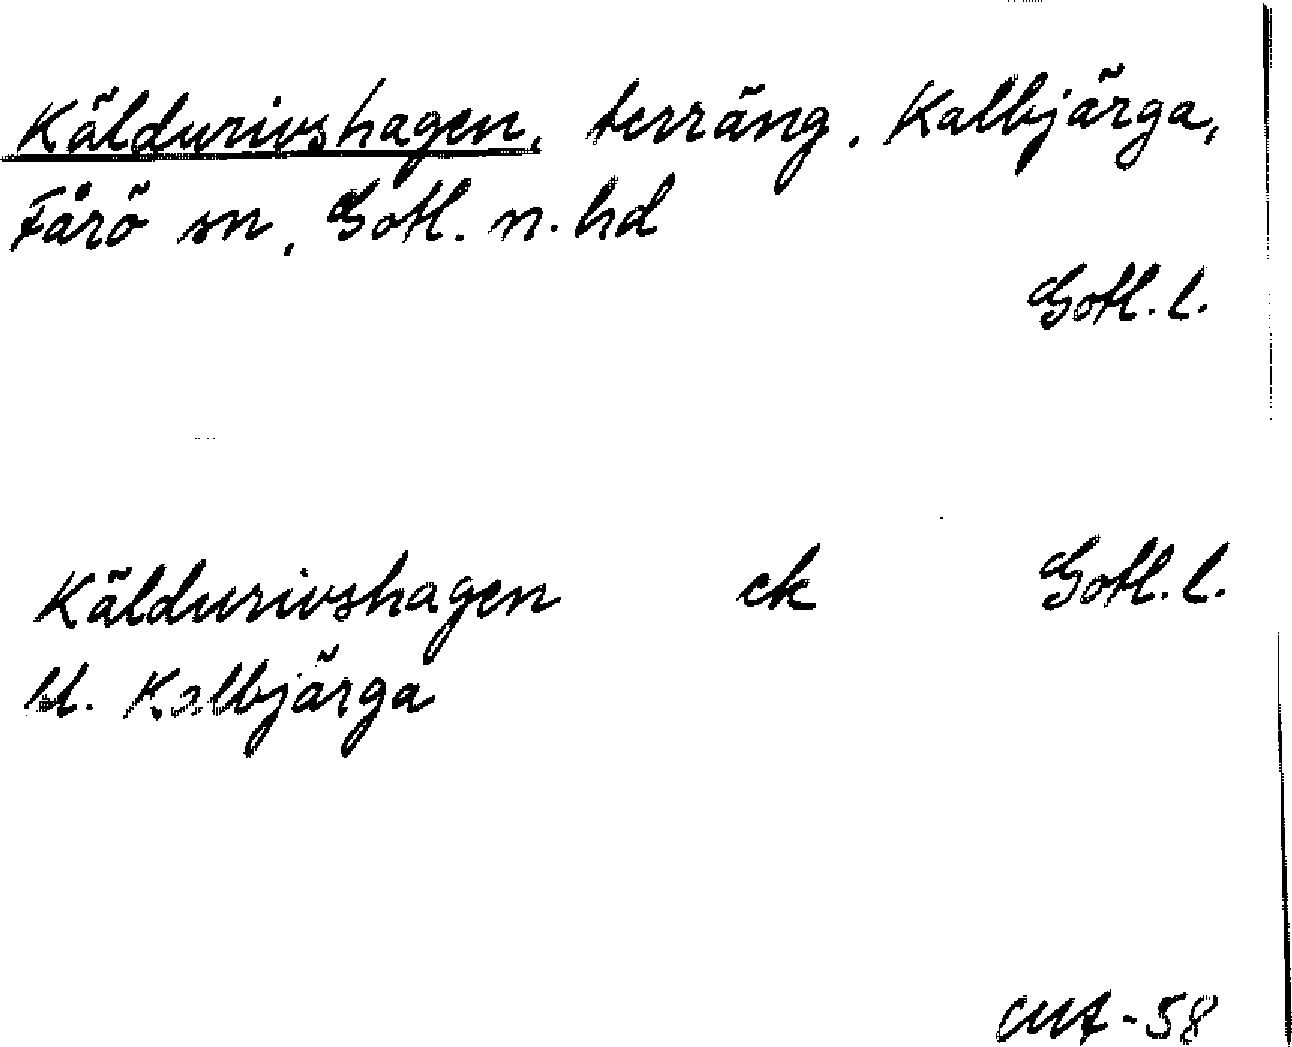 Käldurivshagen, terräng, Kalbjärga,
Fårö sn, Gotl. n. hd
Gotl. l.
Käldurivshagen ek Gotl. l.
bl. Kalbjärga
CMA-58